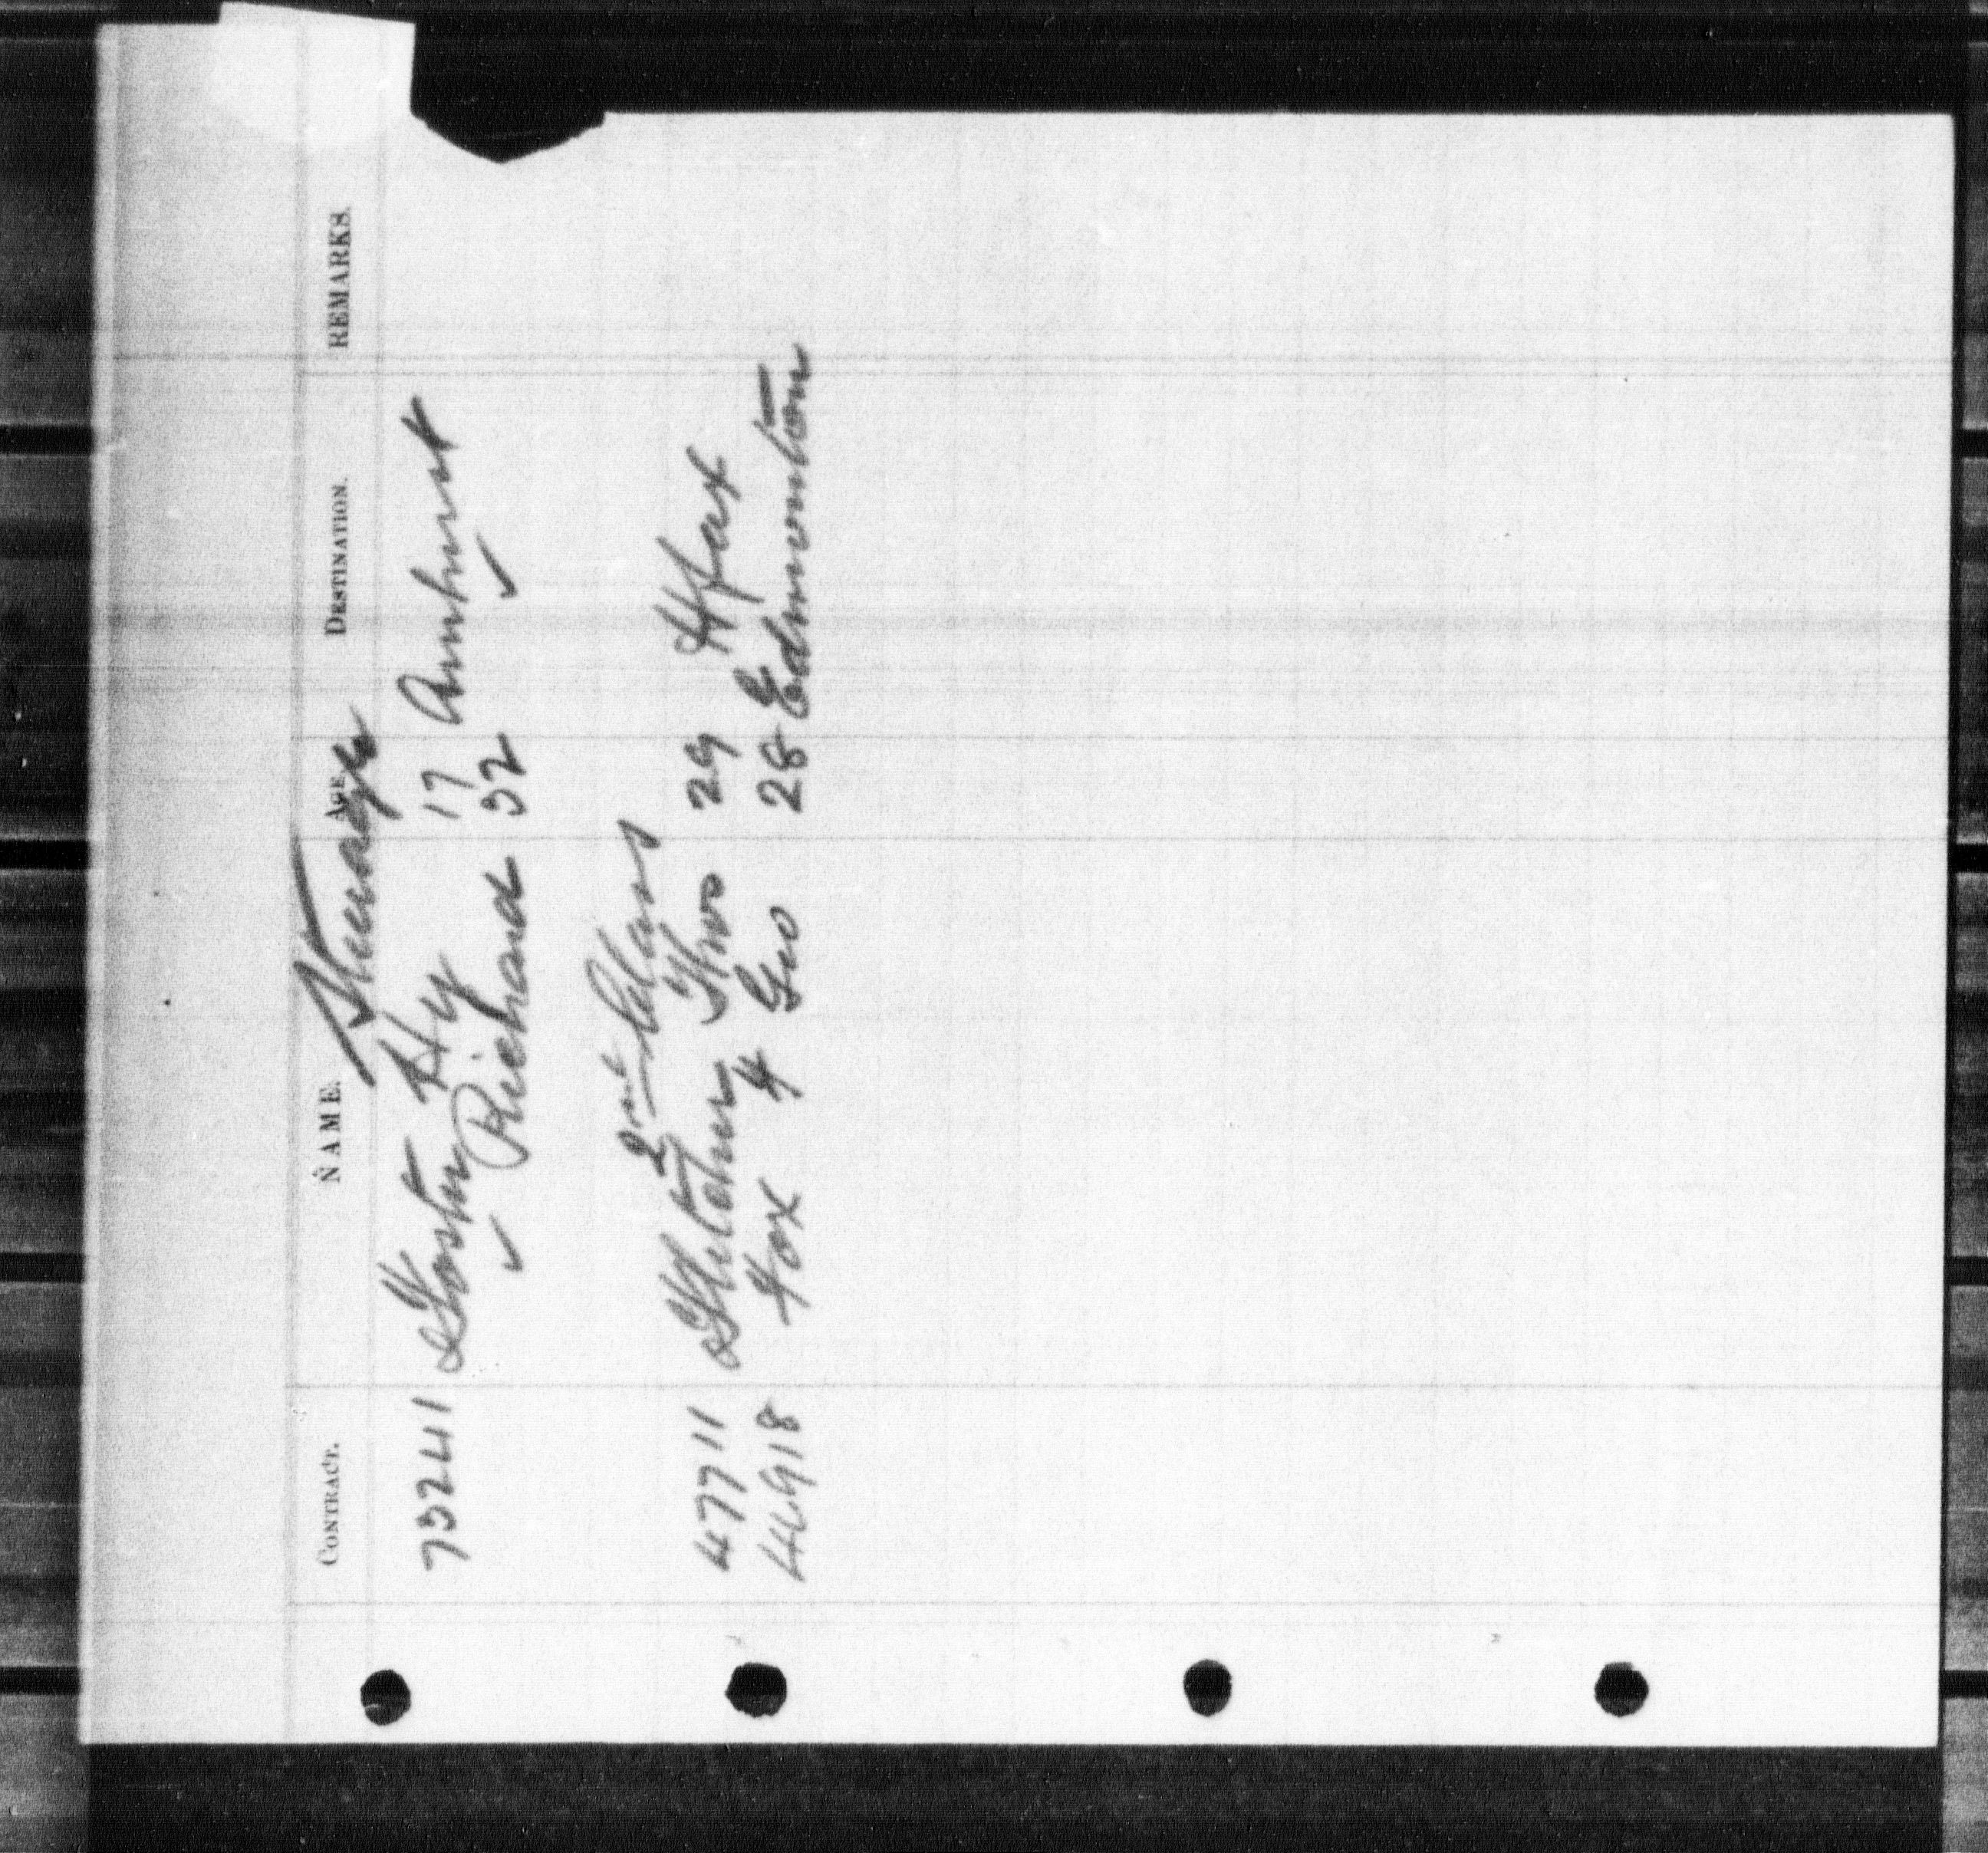 CONTRACT. NAME. AGE. DESTINATION. REMARKS.
Steerage
73241 Foster Hy 17 Amherst
✓ Richard 32 ✓
2nd Class
47711 Fletcher Thos 29 Hfax
44918 Fox H Geo 28 Edmonton